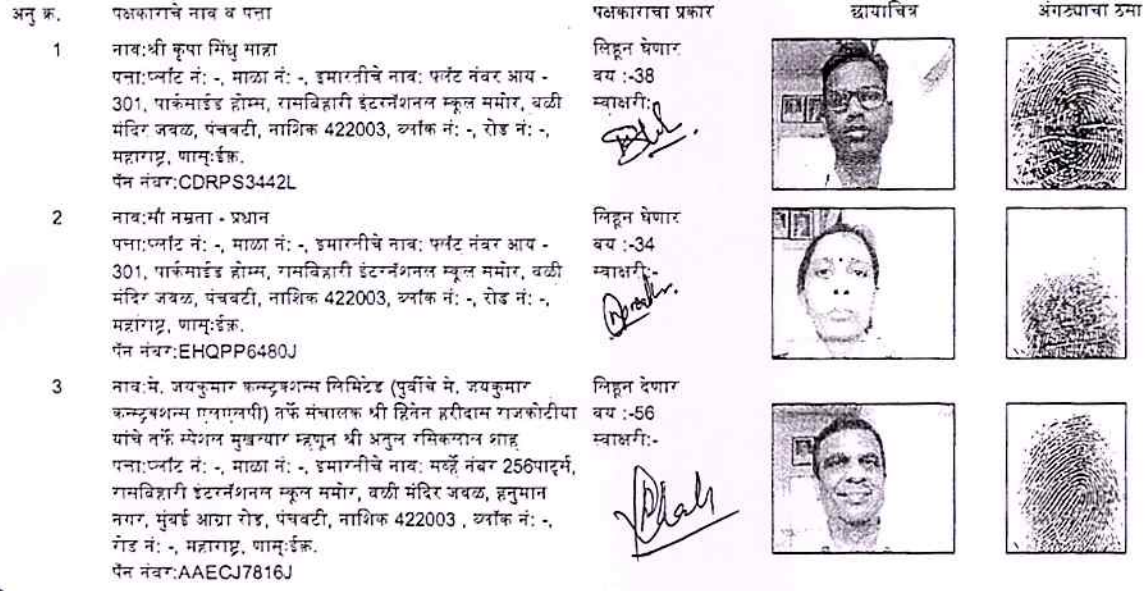 अनु क्र. पक्षकाराचे नाव व पत्ता पक्षकाराचा प्रकार छायाचित्र अंगठ्याचा ठसा
1 नाव:श्री कृपा सिंधु साहा लिहून घेणार
पत्ता:प्लॉट नं: -, माळा नं: -, इमारतीचे नाव: फ्लॅट नंबर आय - वय :-38
301, पार्कसाईड होम्स, रासबिहारी इंटरनॅशनल स्कूल समोर, बळी स्वाक्षरी:-
मंदिर जवळ, पंचवटी, नाशिक 422003, ब्लॉक नं: -, रोड नं: -,
महाराष्ट्र, णास्:ईक़.
पॅन नंबर:CDRPS3442L
2 नाव:सौ नम्रता - प्रधान लिहून घेणार
पत्ता:प्लॉट नं: -, माळा नं: -, इमारतीचे नाव: फ्लॅट नंबर आय - वय :-34
301, पार्कसाईड होम्स, रासबिहारी इंटरनॅशनल स्कूल समोर, बळी स्वाक्षरी:-
मंदिर जवळ, पंचवटी, नाशिक 422003, ब्लॉक नं: -, रोड नं: -,
महाराष्ट्र, णास्:ईक़.
पॅन नंबर:EHQPP6480J
3 नाव:मे. जयकुमार कन्स्ट्रक्शन्स लिमिटेड (पुर्वीचे मे. जयकुमार लिहून देणार
कन्स्ट्रक्शन्स एलएलपी) तर्फे संचालक श्री हितेन हरीदास राजकोटीया वय :-56
यांचे तर्फे स्पेशल मुखत्यार म्हणून श्री अतुल रसिकलाल शाह स्वाक्षरी:-
पत्ता:प्लॉट नं: -, माळा नं: -, इमारतीचे नाव: सर्व्हे नंबर 256पार्ट्स,
रासबिहारी इंटरनॅशनल स्कूल समोर, बळी मंदिर जवळ, हनुमान
नगर, मुंबई आग्रा रोड, पंचवटी, नाशिक 422003 , ब्लॉक नं: -,
रोड नं: -, महाराष्ट्र, णास्:ईक़.
पॅन नंबर:AAECJ7816J